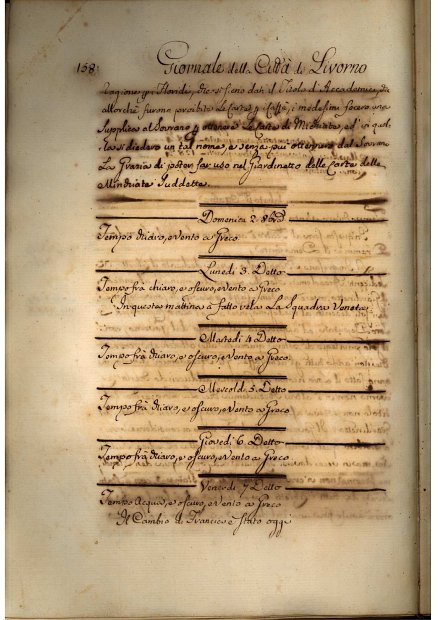 158. Giornale della Città di Livorno
Ragione gli Floridi, che si sieno dati il Titolo di Accademici, che
allorchè furono proibite le Carte, i medesimi fecero una
Supplica al Sovrano p ottenere le Carte di Minchiate, ed in quel-
la si diedero un tal nome, e senza più ottennero dal Sovrano
La Grazia di poter far uso nel Giardinetto delle Carte delle
Minchiate suddette.
Domenica 2.
Tempo chiaro, e Vento a Greco
Lunedì 3. Detto
Tempo frà chiaro, e oscuro, e Vento a Greco
In questa mattina à fatto vela La Squadra Veneta.
Martedì 4 Detto
Tempo frà chiaro, e oscuro, e Vento a Greco.
Mescoldì 5. Detto
Tempo frà chiaro, e oscuro, e Vento a Greco
Giovedì 6. Detto
Tempo frà chiaro, e oscuro, e Vento a Greco
Venerdì 7 Detto
Tempo Acqua, e oscuro, e Vento a Greco
Il Cambio di Francia è stato oggi